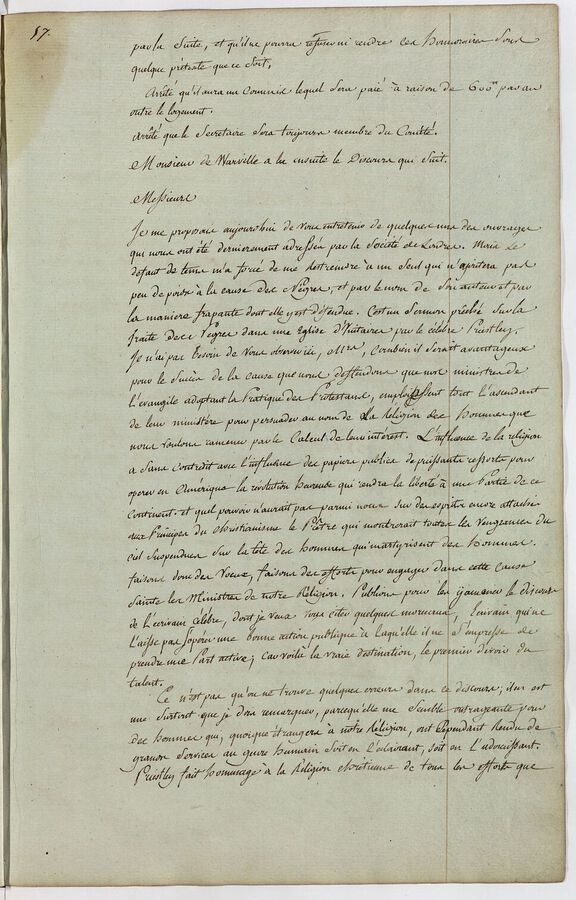 57.
par la Suite, et qu'il ne pourra refuser ni rendre ces honnoraires sous
quelque prétexte que ce soit,
Arrêté qu'il aura un Commis lequel Sera paié à raison de 600 par an
outre le logement.
Arrêté que le Secretaire Sera toujours membre du Comité.
Monsieur de Warville a lu ensuite le Discours qui Suit.
Messieurs
Je me proposois aujourd'hui de vous entretenir de quelques uns des ouvrages
qui nous ont été dernierement adressés par la Société de Londres. Mais le
défaut de tems m'a forcé de me restreindre à un Seul qui n'ajoutera pas
peu de poids à la cause des Négres, et par le nom de Son auteur et par
la maniere frapante dont elle y est défendue. C'est un Sermon prêché Sur la
traite des Négres dans une Eglise d'Unitaires par le célébre Priestley.
Je n'ai pas besoin de vous observer ici, Mrs, combien il Serait avantageux
pour le Succès de la cause que nous deffendons que nos ministres de
l'evangile adoptant la Pratique des Protestans, employassent tout l'ascendant
de leur ministère pour persuader au nom de La Religion des hommes que
nous voulons ramener par le Calcul de leur intérêt. L'influence de la religion
a Sans contredit avec l'influence des papiers publics de puissants ressorts pour
operer en Amérique la révolution heureuse qui rendra la liberté à une Partie de ce
Continent. et quel pouvoir n'aurait pas parmi nous Sur des esprits encore attachés
aux Principes du Christianisme le Prêtre qui montrerait toutes les Vengeances du
ciel Suspendues Sur la tête des hommes qui martyrisent des hommes.
faisons donc des Voeux, faisons des efforts pour engager dans cette cause
Sainte les Ministres de notre Réligion. Publions pour les y amener le discours
de l'ecrivain célébre, dont je veux vous citer quelques morceaux, ecrivain qui ne
laisse pas Sopérer une bonne action publique à laquelle il ne S'empresse de
prendre une Part active; car voilà la vraie destination, le premier devoir du
talent.
Ce n'est pas qu'on ne trouve quelques erreurs dans ce discours; il en est
une Surtout que je dois remarquer, parcequ'elle me Semble outrageante pour
des hommes qui, quoique étrangers à notre Réligion, ont Cependant Rendu de
grands Services au genre humain Soit en l'eclairant, soit en l'adoucissant.
Priestley fait hommage à la Réligion chrétienne de tous les efforts que